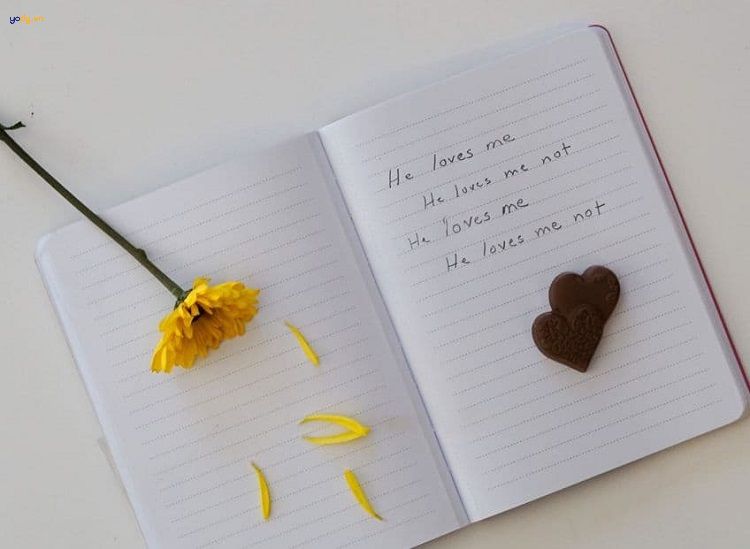 yody.vn
He loves me
He loves me not
He loves me
He loves me not